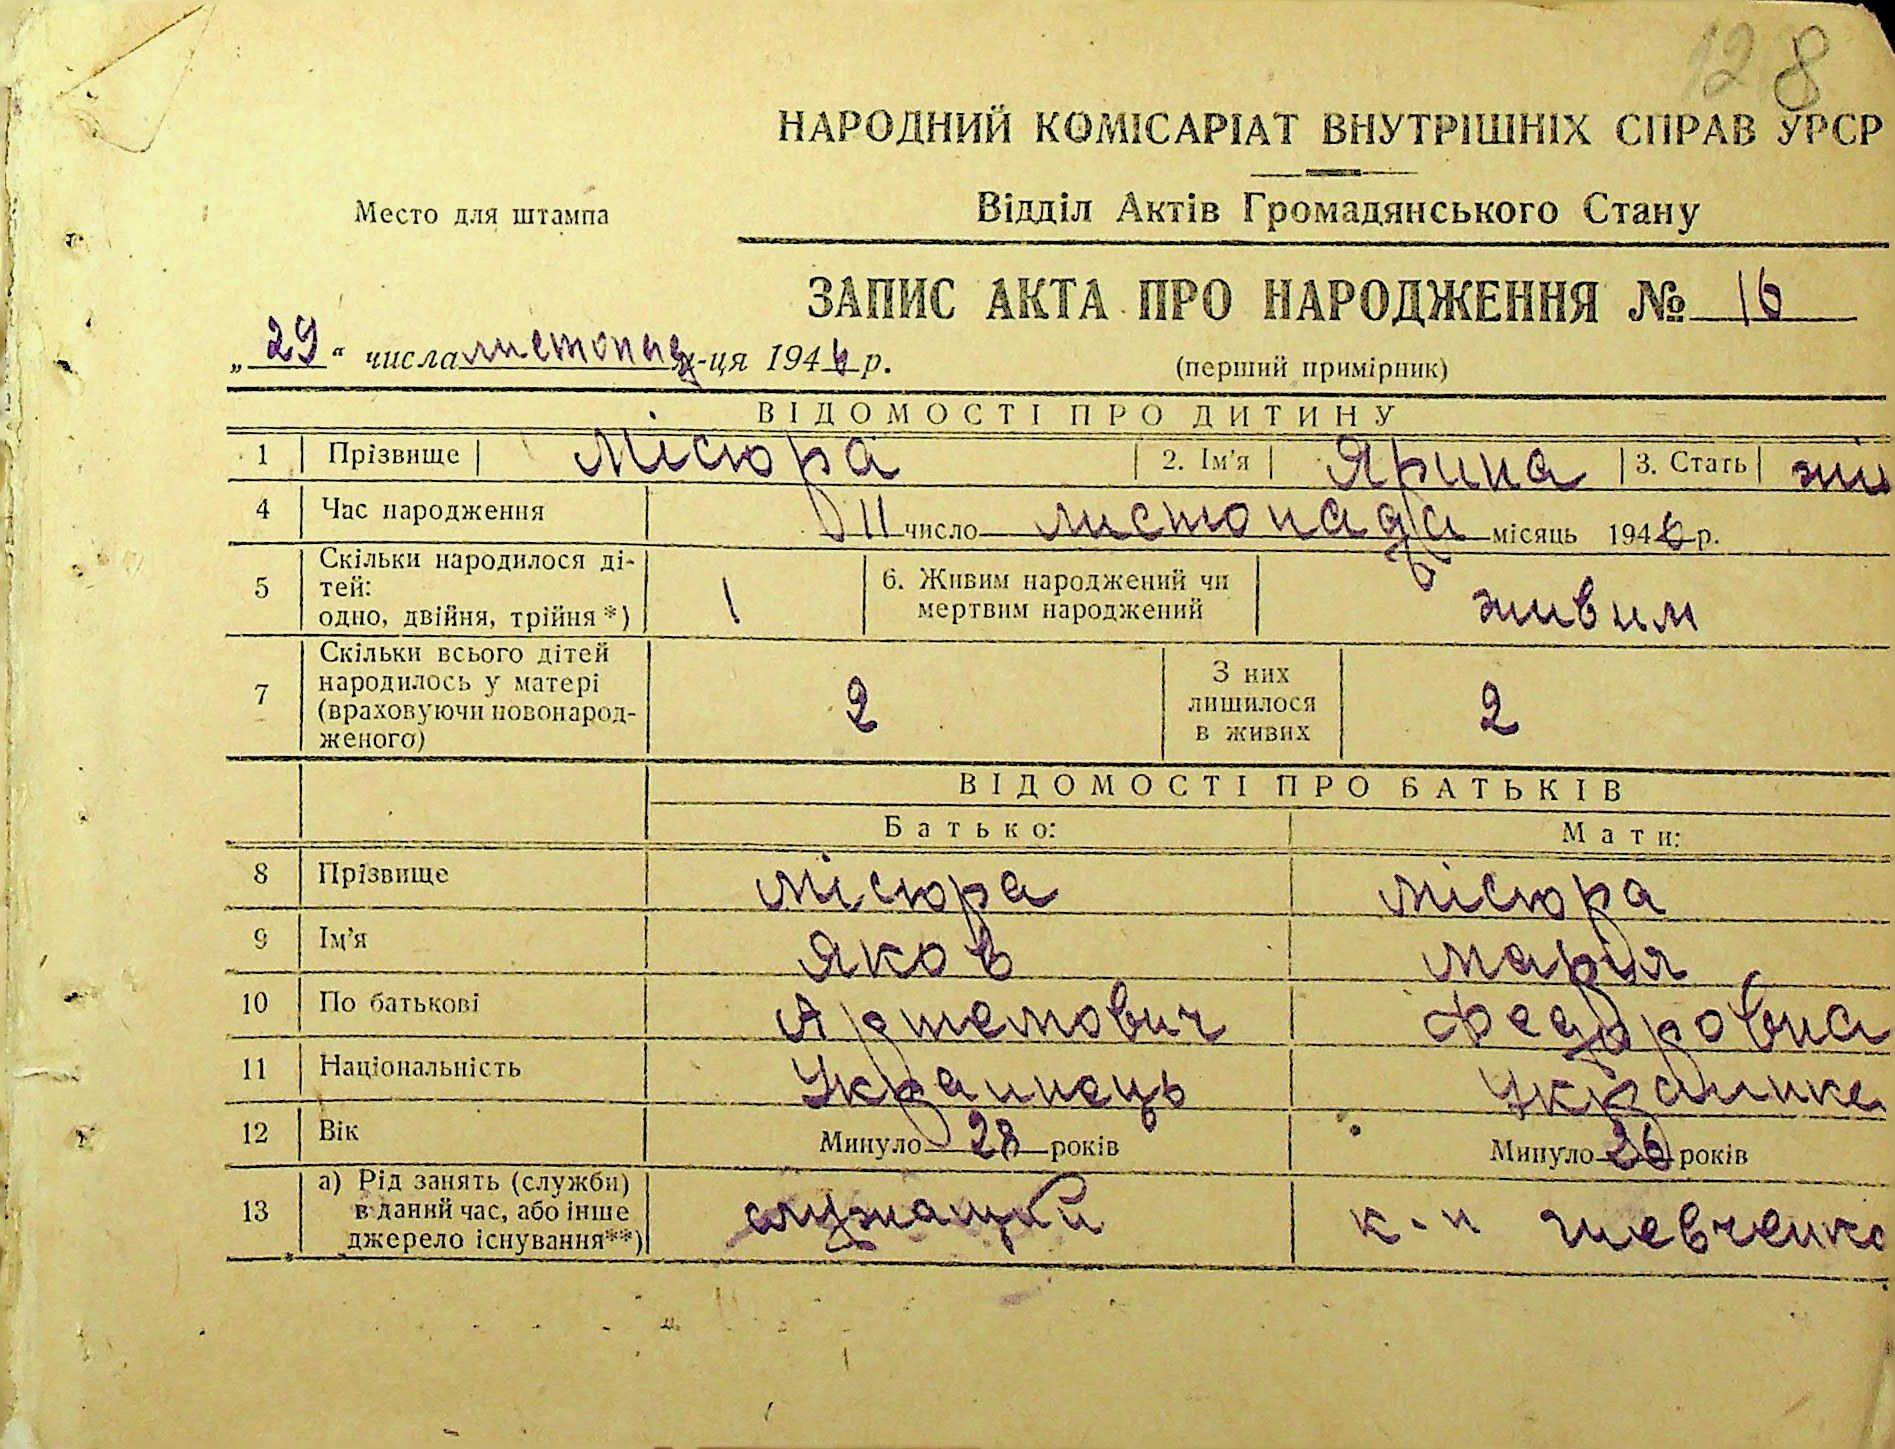 128
НАРОДНИЙ КОМІСАРІАТ ВНУТРІШНІХ СПРАВ УРСР
Место для штампа
Відділ Актів Громадянського Стану
ЗАПИС АКТА ПРО НАРОДЖЕННЯ № 16
„29“ числа листопад м-ця 1946 р.
(перший примірник)
ВІДОМОСТІ ПРО ДИТИНУ
1 Прізвище Місюра 2. Ім'я Ярина 3. Стать жі
4 Час народження 11 число листопада місяць 1946 р.
5 Скільки народилося ді-
тей:
одно, двійня, трійня*) 1 6. Живим народжений чи
мертвим народжений живим
7 Скільки всього дітей
народилось у матері
(враховуючи новонарод-
женого) 2 З них
лишилося
в живих 2
ВІДОМОСТІ ПРО БАТЬКІВ
Батько: Мати:
8 Прізвище Місюра Місюра
9 Ім'я Яков Марія
10 По батькові Артемович Федоровна
11 Національність Украинець Украинка
12 Вік Минуло 28 років Минуло 26 років
13 а) Рід занять (служби)
в даний час, або інше
джерело існування**) служащий к-п Шевченко